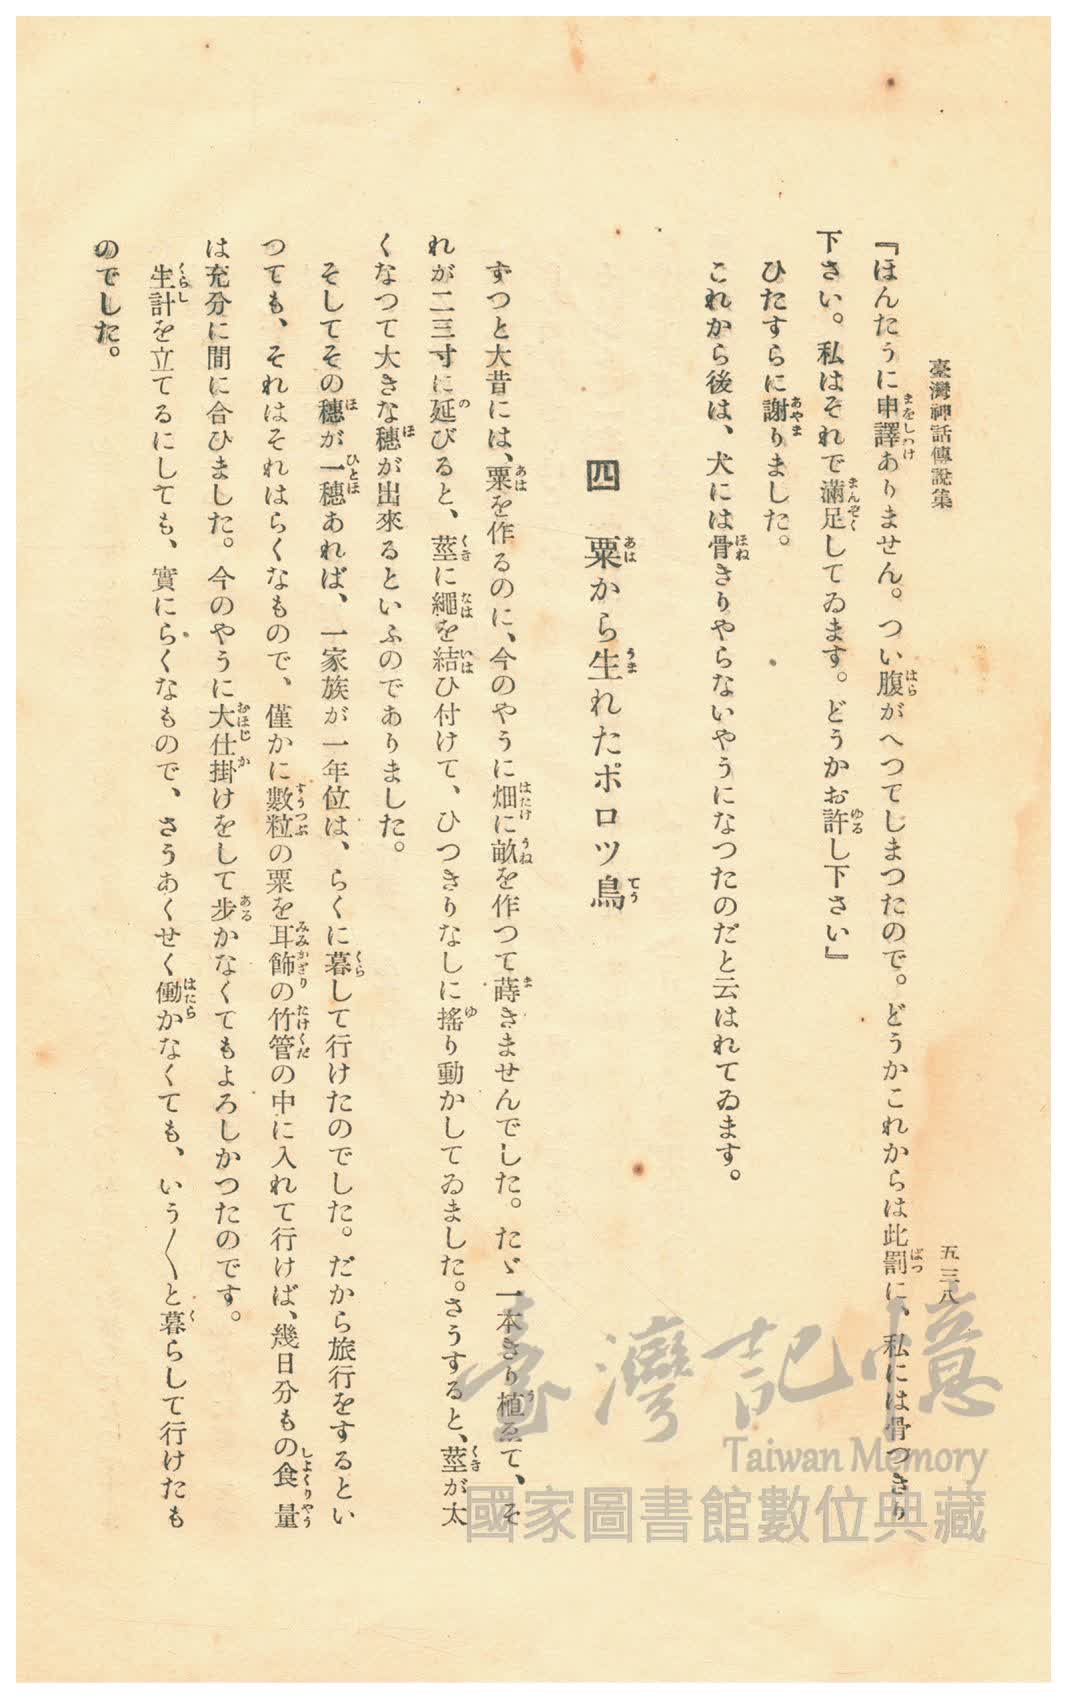 臺灣神話傳說集
五三八
『ほんたうに申譯ありません。つい腹がへつてしまつたので。どうかこれからは此罰に、私には骨つきり
下さい。私はそれで滿足してゐます。どうかお許し下さい』
ひたすらに謝りました。
これから後は、犬には骨きりやらないやうになつたのだと云はれてゐます。
四 粟から生れたポロツ鳥
ずつと大昔には、粟を作るのに、今のやうに畑に畝を作つて蒔きませんでした。たゞ一本きり植ゑて、そ
れが二三寸に延びると、莖に繩を結ひ付けて、ひつきりなしに搖り動かしてゐました。さうすると、莖が太
くなつて大きな穗が出來るといふのでありました。
そしてその穗が一穗あれば、一家族が一年位は、らくに暮して行けたのでした。だから旅行をするとい
つても、それはそれはらくなもので、僅かに數粒の粟を耳飾の竹管の中に入れて行けば、幾日分もの食量
は充分に間に合ひました。今のやうに大仕掛けをして步かなくてもよろしかつたのです。
生計を立てるにしても、實にらくなもので、さうあくせく働かなくても、いう〱と暮らして行けたも
のでした。
臺灣記憶
Taiwan Memory
國家圖書館數位典藏